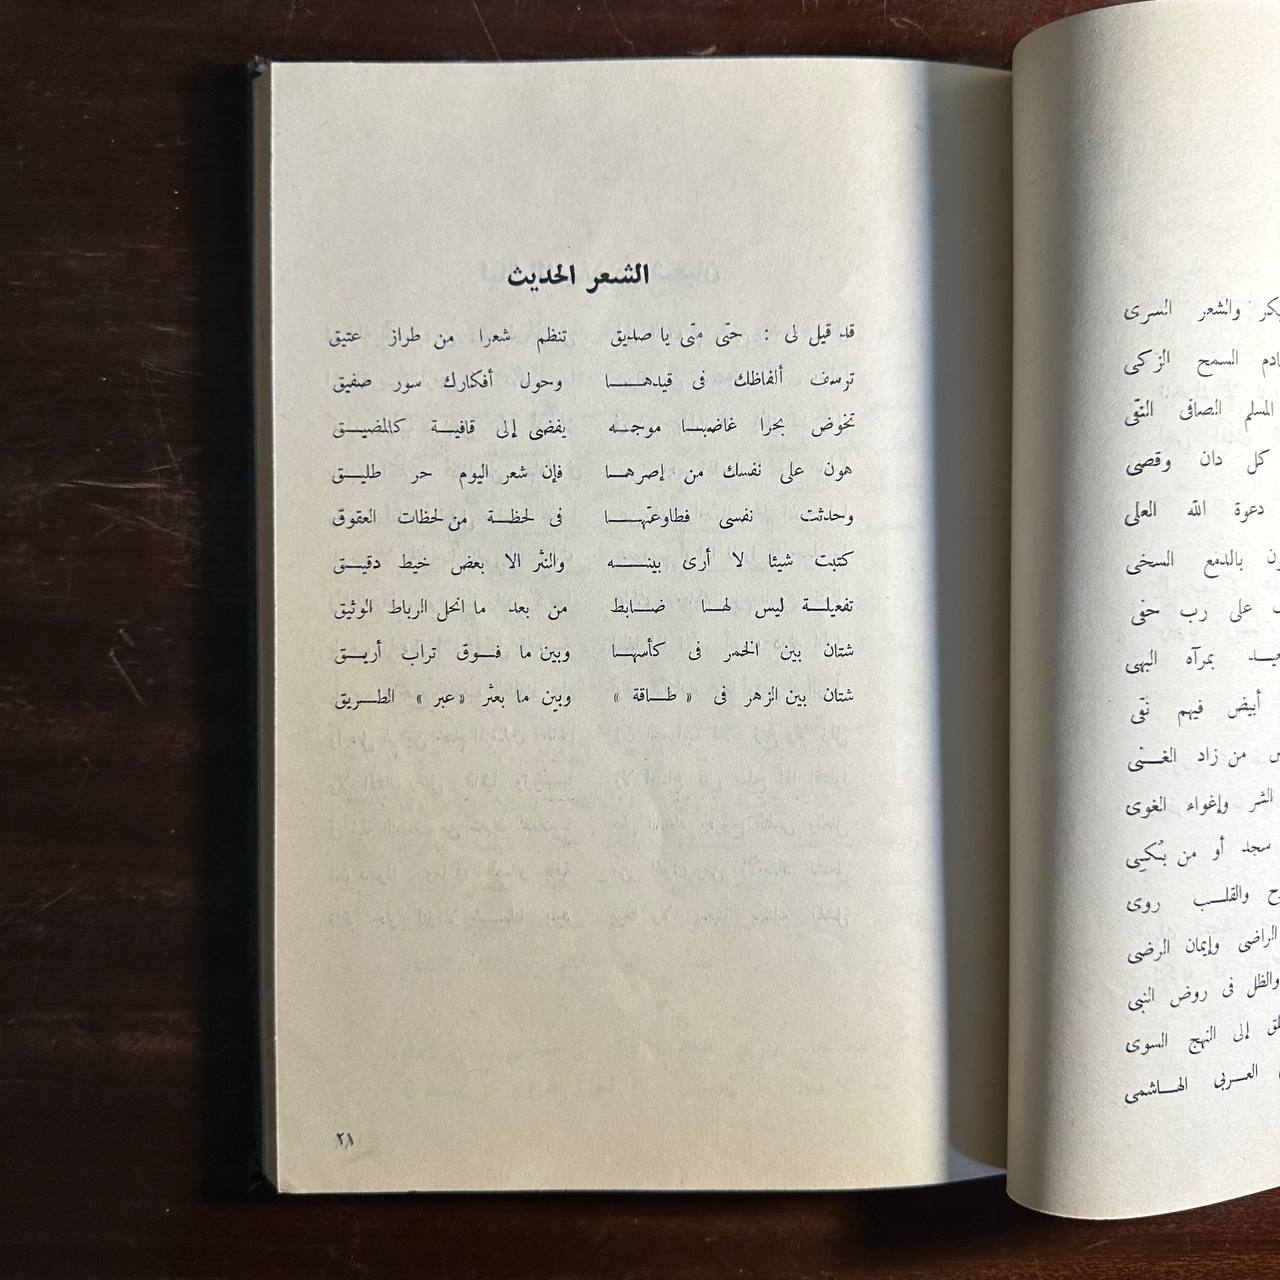 الشعر الحديث
قد قيل لى : حتى متى يا صديق تنظم شعرا من طراز عتيق
ترسف ألفاظك فى قيدها وحول أفكارك سور صفيق
تخوض بحرا غاضبا موجه يفضى إلى قافية كالمضيق
هون على نفسك من إصرها فإن شعر اليوم حر طليق
وحدثت نفسى فطاوعتها فى لحظة من لحظات العقوق
كتبت شيئا لا أرى بينه والنثر الا بعض خيط دقيق
تفعيلة ليس لها ضابط من بعد ما انحل الرباط الوثيق
شتان بين الخمر فى كأسها وبين ما فوق تراب أريق
شتان بين الزهر فى « طاقة » وبين ما بعثر « عبر » الطريق
٢١
والشعر السرى
السمح الزكى
المسلم الصافى التقى
كل دان وقصى
دعوة الله العلى
بالدمع السخى
على رب حفى
بمرآه البهى
أبيض فيهم نقى
من زاد الغنى
الشر وإغواء الغوى
سجد أو من بكى
والقلب روى
الراضى وإيمان الرضى
والظل فى روض النبى
إلى النهج السوى
العربى الهاشمى